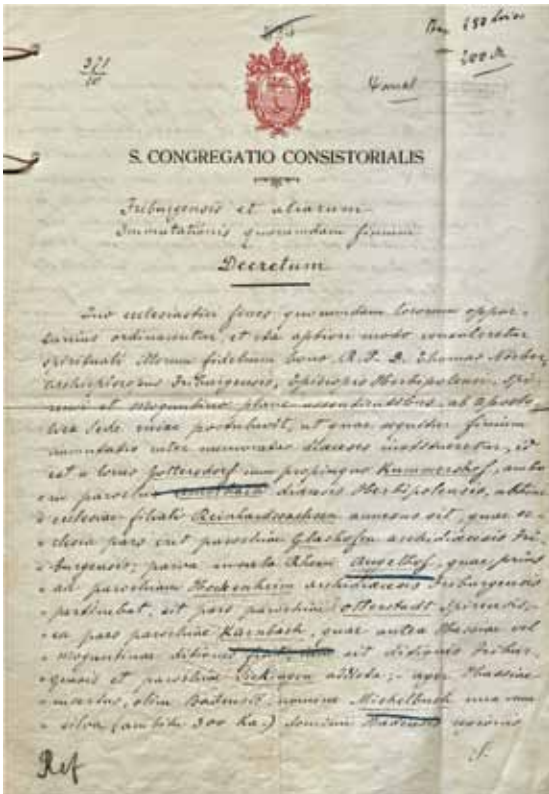 371
10
200 M
S. CONGREGATIO CONSISTORIALIS
Friburgensis et aliarum
Immutationis quorumdam finium
Decretum
Quo ecclesiastici fines quorumdam locorum oppor-
tunius ordinarentur, et ita aptiori modo consuleretur
spirituali illorum fidelium bono R. P. D. Thomas Nörber,
archiepiscopus Friburgensis, Episcopis Herbipolensi, Spi-
rensi et Moguntino plane assentientibus, ab Aposto-
lica Sede postulavit, ut quae sequitur finium
immutatio inter memoratas dioeceses induceretur, id
est: locus Gottersdorf cum propinquo Kummershof, antea
paroeciae Amorbach dioecesis Herbipolensis,
ecclesiae filiali Reinhardsachsen annexus sit, quae ec-
clesia pars erit paroeciae Glashofen archidioecesis Fri-
burgensis; parva insula Rheni Angelhof, quae prius
ad paroeciam Hockenheim archidioecesis Friburgensis
pertinebat, sit pars paroeciae Otterstadt Spirensis;
ea pars paroeciae Karnbach, quae antea Hassiae vel
Moguntinae ditionis sit ditionis Fribur-
gensis et paroeciae addicta; ager Hassiae
insertus, olim Badensis, nomine Michelbuch una cum
silva (ambitu 300 Ha.) dominii Badensis regionis
Ref